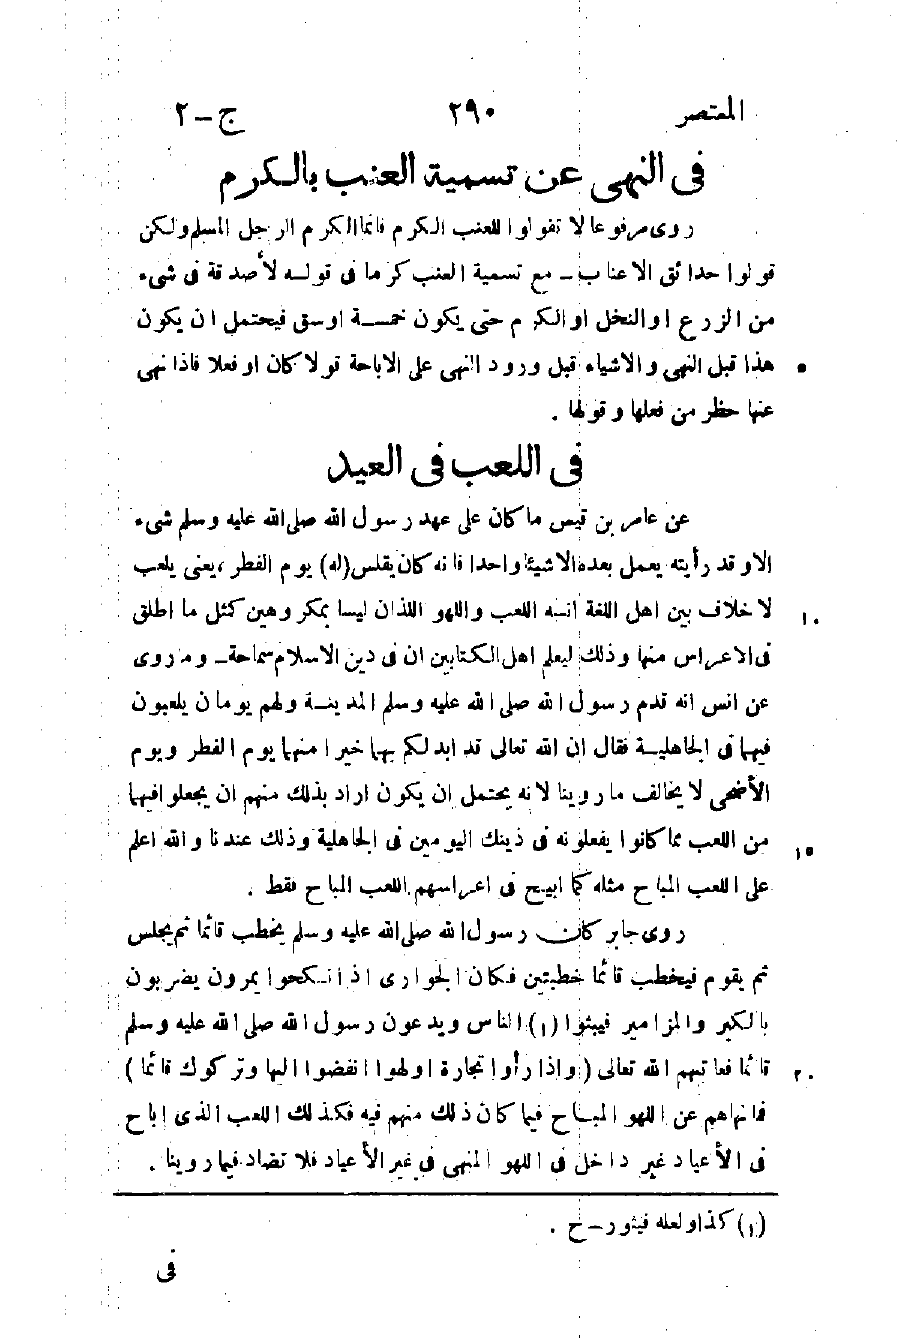 المعتصر ٢٩٠ ج-٢
فى النهى عن تسمية العنب بالكرم
روى مرفوعا لا تقولوا للعنب الكرم فانما الكرم الرجل المسلم ولكن
قولوا حدائق الاعناب - مع تسمية العنب كرما فى قوله لأصدقة فى شىء
من الزرع او النخل او الكرم حتى يكون خمسة اوسق فيحتمل ان يكون
هذا قبل النهى والاشياء قبل ورود النهى على الاباحة قولا كان او فعلا فاذا نهى ٥
عنها حظر من فعلها وقولها .
فى اللعب فى العيد
عن عامر بن قيس ما كان على عهد رسول الله صلى الله عليه وسلم شىء
الا وقد رأيته يعمل بعده الا شيئا واحدا فانه كان يقلس (له) يوم الفطر ، يعنى يلعب
لا خلاف بين اهل اللغة انه اللعب واللهو اللذان ليسا بمكروهين كمثل ما اطلق ١٠
فى الاعراس منها وذلك ليعلم اهل الكتابين ان فى دين الاسلام سماحة - وما روى
عن انس انه قدم رسول الله صلى الله عليه وسلم المدينة ولهم يومان يلعبون
فيهما فى الجاهلية فقال ان الله تعالى قد ابدلكم بهما خيرا منهما يوم الفطر ويوم
الأضحى لا يخالف ما روينا لانه يحتمل ان يكون اراد بذلك منهم ان يجعلوا فيهما
من اللعب مما كانوا يفعلونه فى ذينك اليومين فى الجاهلية وذلك عندنا والله اعلم ١٥
على اللعب المباح مثله كما ابيح فى اعراسهم اللعب المباح فقط .
روى جابر كان رسول الله صلى الله عليه وسلم يخطب قائما ثم يجلس
ثم يقوم فيخطب قائما خطبتين فكان الجوارى اذا انكحوا يمرون يضربون
بالكبر والمزامير فيبثوا (١) الناس ويدعون رسول الله صلى الله عليه وسلم
قائما فعاتبهم الله تعالى (واذا رأوا تجارة او لهوا انفضوا اليها وتركوك قائما) ٢٠
فانهاهم عن اللهو المباح فيما كان ذلك منهم فيه فكذلك اللعب الذى اباح
فى الأعياد غير داخل فى اللهو المنهى فى غير الأعياد فلا تضاد فيما روينا .
(١) كذا ولعله فيثور - ح .
فى